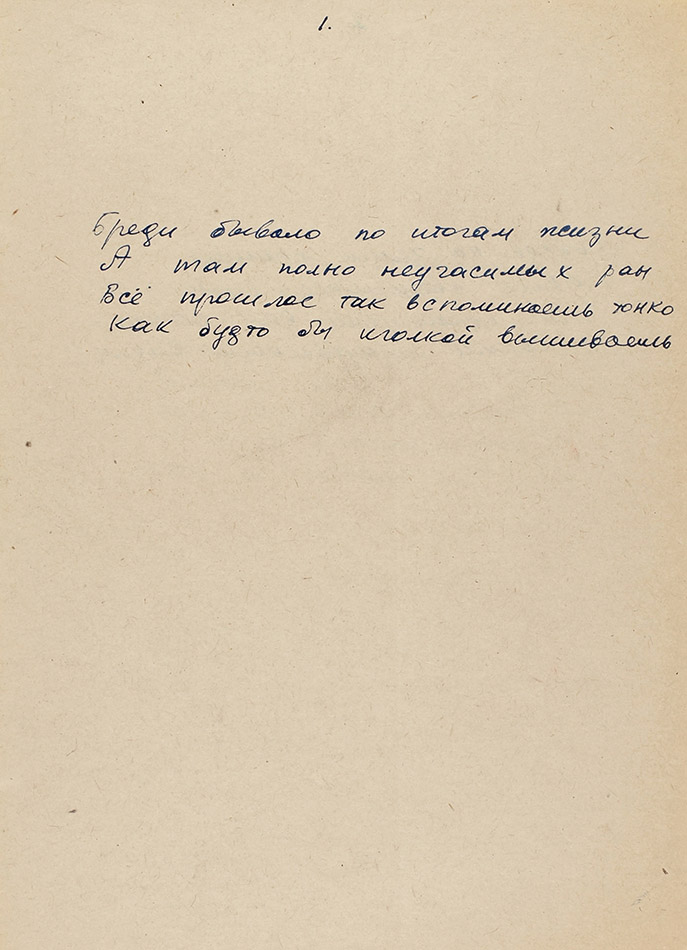 1.
Бреди бывало по итогам жизни
А там полно неугасимых ран
Всё прошлое так вспоминаешь тонко
Как будто бы иголкой вышиваешь